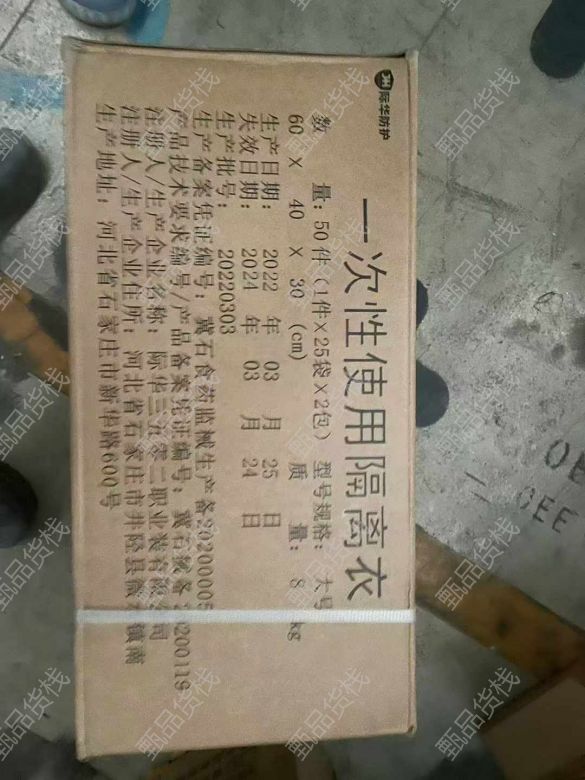 际华防护
一次性使用隔离衣
数 量:50件(1件×25袋×2包) 型号规格:大号
60 × 40 × 30 (cm) 质 量: 8 kg
生产日期: 2022 年 03 月 25 日
失效日期: 2024 年 03 月 24 日
生产批号: 20220303
生产备案凭证编号: 冀石食药监械生产备20200005
产品技术要求编号/产品备案凭证编号: 冀石械备20200119
注册人/生产企业名称: 际华三五零二职业装有限公司
注册人/生产企业住所: 河北省石家庄市井陉县微水镇南
生产地址: 河北省石家庄市新华路600号
OEE
甄品货栈